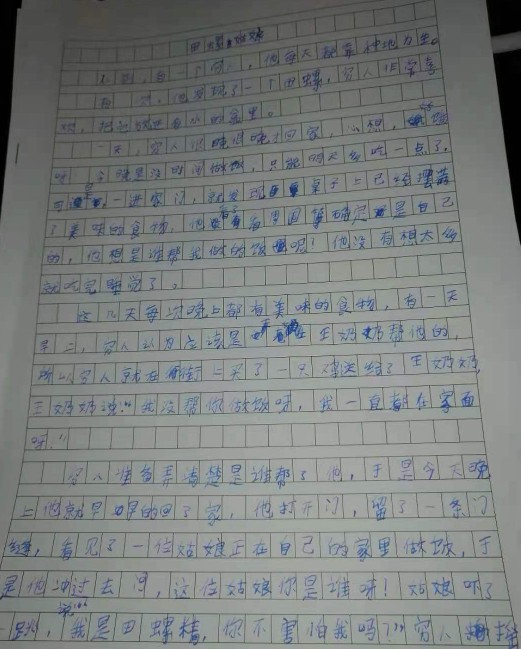 田螺姑娘
从前,有一个穷人,他每天都靠种地为生。
有一次,他遇到了一个田螺,穷人非常喜
欢,把它放进自己的家里。
一天,穷人很晚很晚才回家,心想,
呀,今晚是没时间做饭,只能明天多吃一点了。
可一进家门,就发现桌子上已经摆满
了美味的食物,他看了看周围确定是自己
的,他想是谁帮我做的饭呢!他没有想太多
就吃完睡觉了。
这几天每次晚上都有美味的食物,有一天
早上,穷人认为应该是王奶奶帮他的,
所以穷人就在街上买了一只鸡送给了王奶奶,
王奶奶说:“我没帮你做饭呀,我一直都在家面
呀!”
穷人准备弄清楚是谁帮了他,于是今天晚
上他就早早的回了家,他打开门,留了一条门
缝,看见了一位姑娘正在自己的家里做饭,于
是他冲过去问,这位姑娘你是谁呀!姑娘吓了
一跳,说:“我是田螺精,你不害怕我吗?”穷人摇